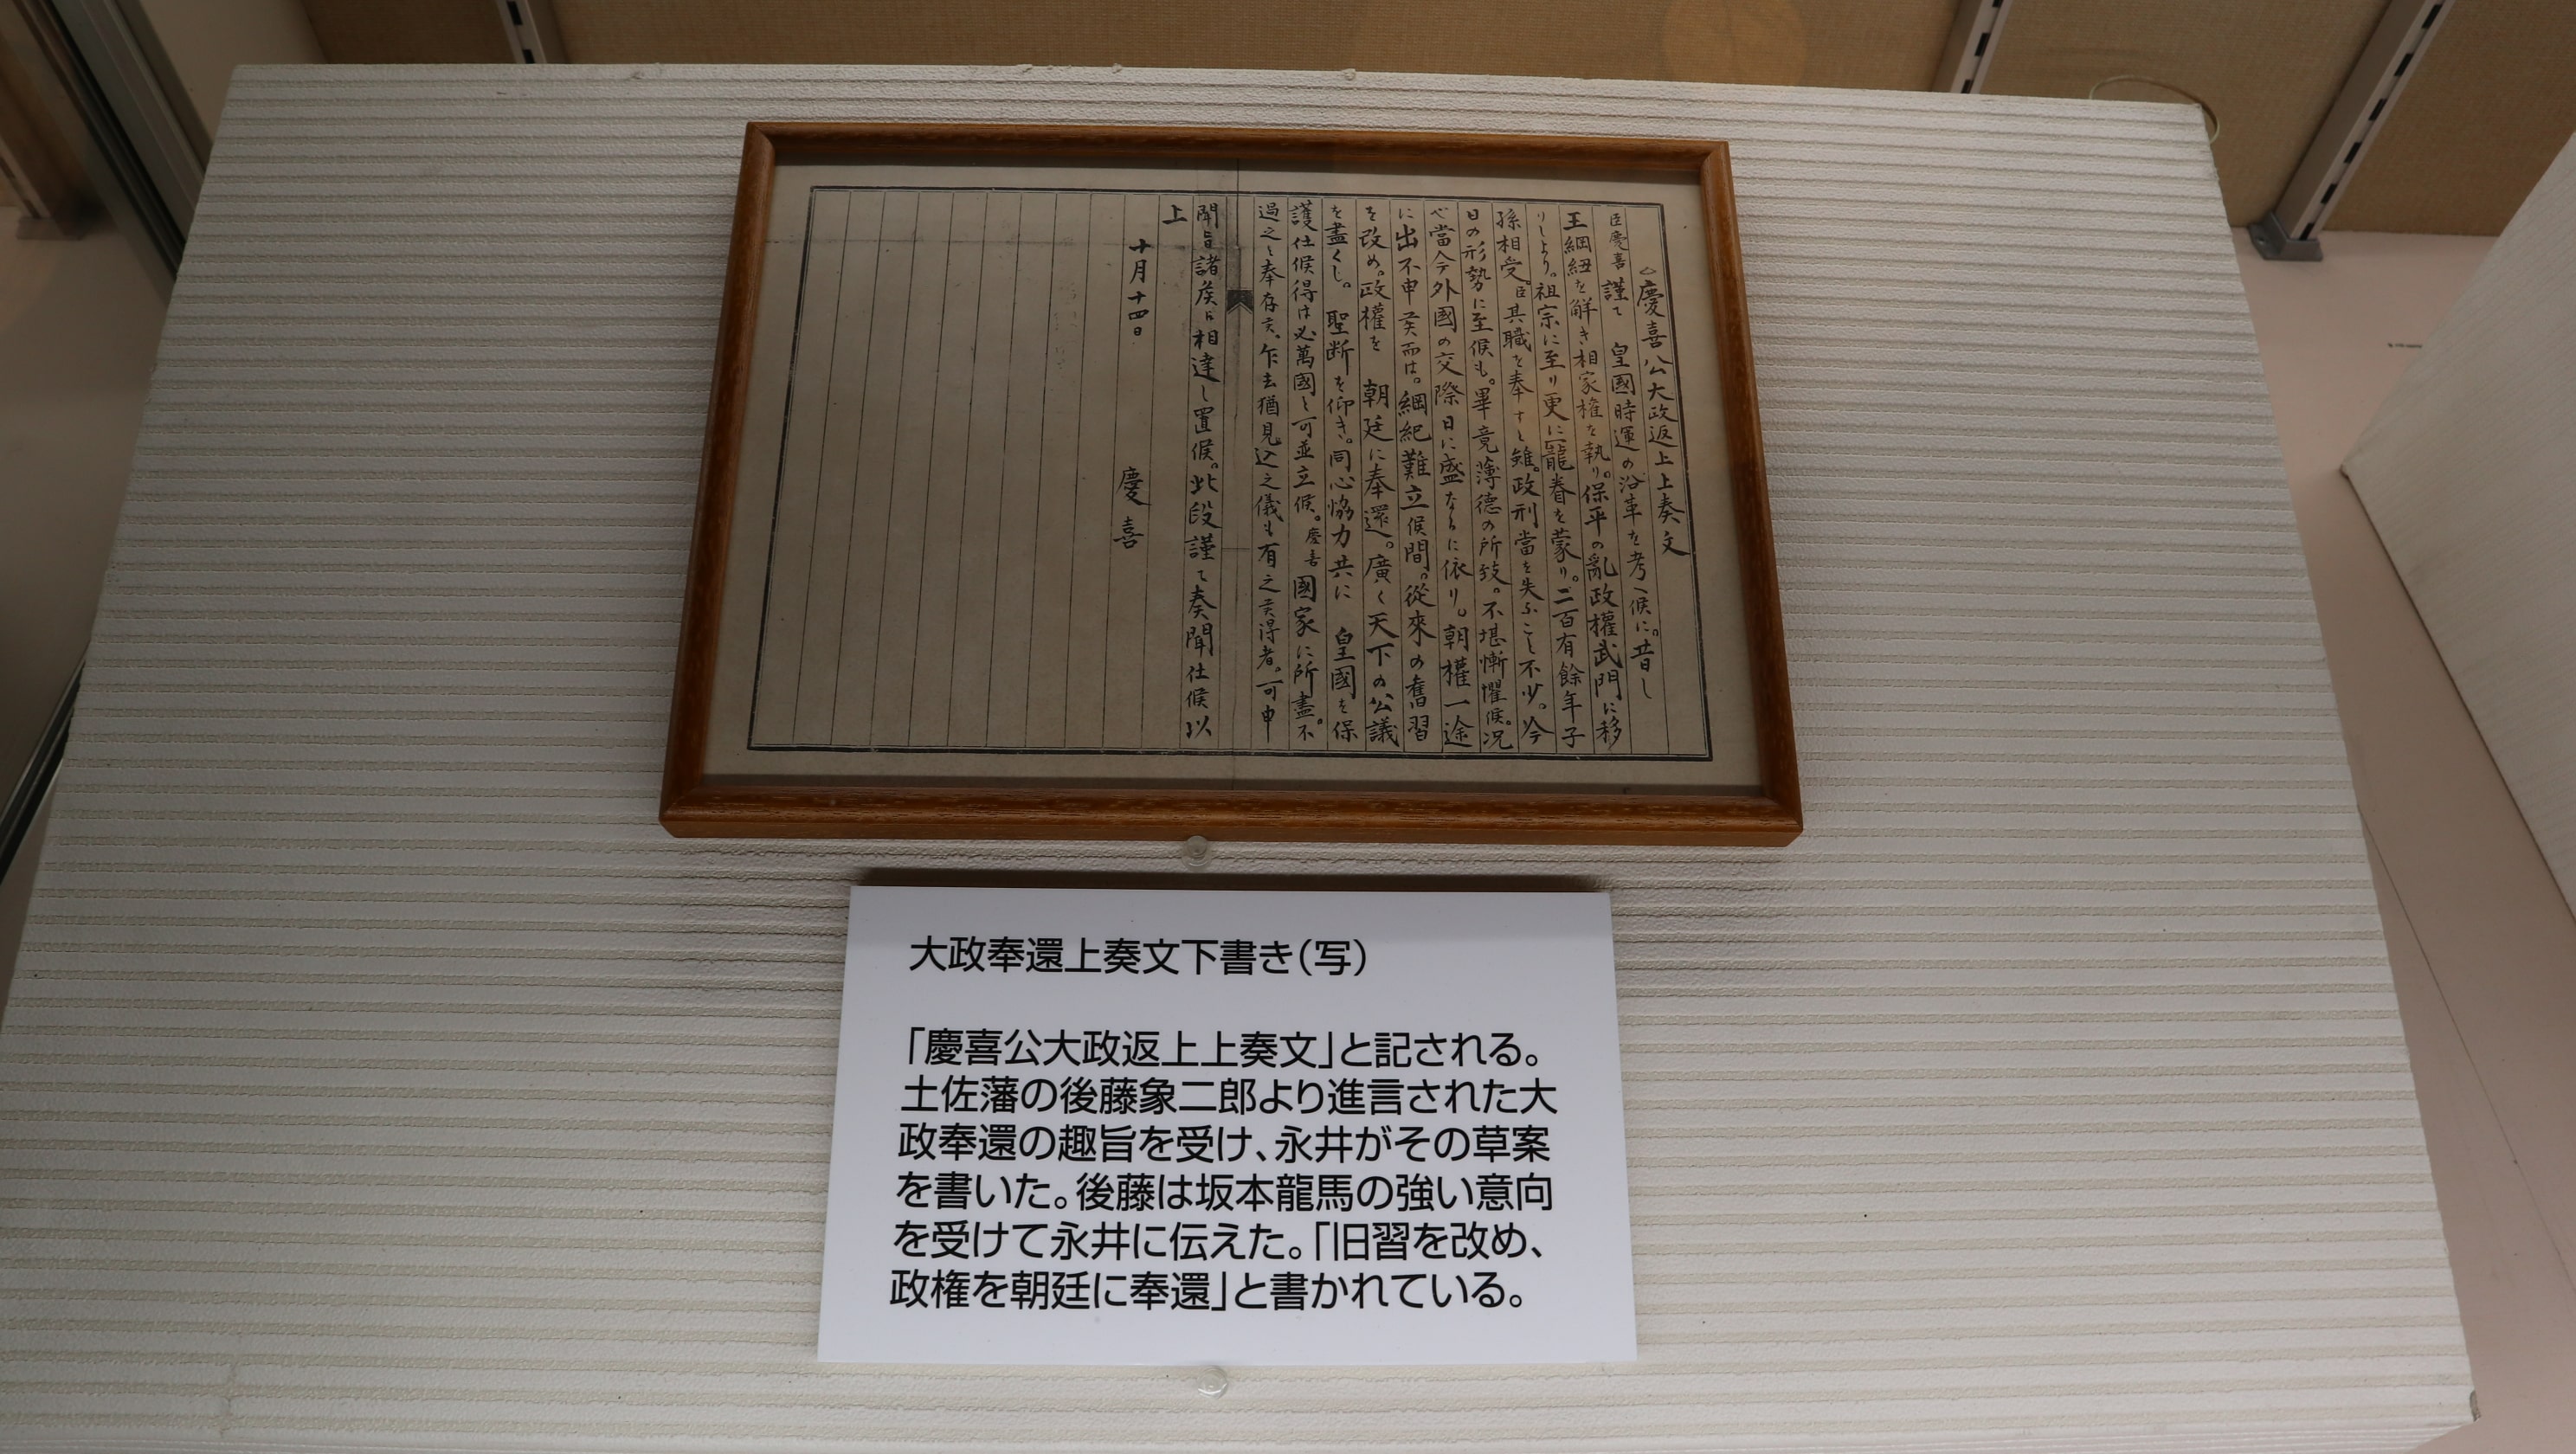 慶喜公大政返上上奏文
臣慶喜謹て皇國時運の沿革を考へ候に。昔し
王綱紐を解き相家權を執り。保平の亂政權武門に移
りしより。祖宗に至り更に寵眷を蒙り。二百有餘年子
孫相受。臣其職を奉すと雖。政刑當を失ふこと不少。今
日の形勢に至候も。畢竟薄德の所致。不堪慚懼候。况
や當今外國の交際日に盛なるに依り。朝權一途
に出不申候而は。綱紀難立候間。從來の舊習
を改め。政權を朝廷に奉還。廣く天下の公議
を盡くし。聖断を仰き。同心協力共に皇國を保
護仕候得は必萬國と可並立候。慶喜國家に所盡。不
過之と奉存候。乍去猶見込之儀も有之候得者。可申
聞旨諸矦に相達し置候。此段謹て奏聞仕候以
上
十月十四日
慶喜
大政奉還上奏文下書き(写)
「慶喜公大政返上上奏文」と記される。
土佐藩の後藤象二郎より進言された大
政奉還の趣旨を受け、永井がその草案
を書いた。後藤は坂本龍馬の強い意向
を受けて永井に伝えた。「旧習を改め、
政権を朝廷に奉還」と書かれている。